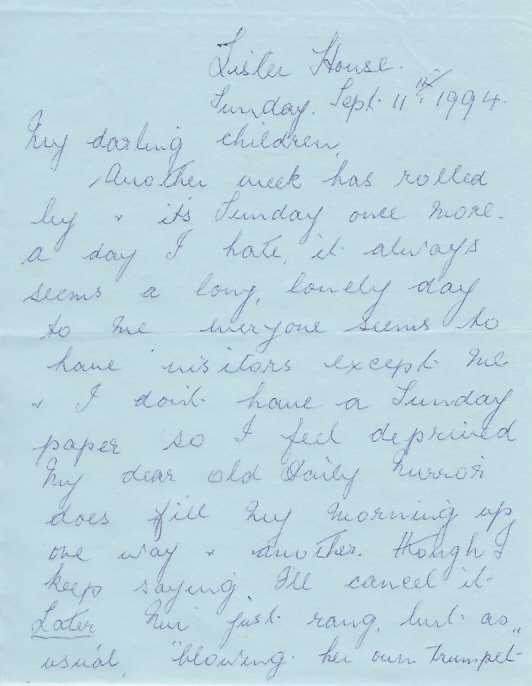 Lister House.
Sunday. Sept. 11th. 1994.
My darling children,
Another week has rolled
by & it's Sunday once more.
a day I hate, it always
seems a long, lonely day
to me everyone seems to
have visitors except me
& I don't have a Sunday
paper so I feel deprived
My dear old Daily Mirror
does fill my morning up,
one way & another. though I
keep saying, I'll cancel it
Later just rang, but as
usual, "blowing her own trumpet"